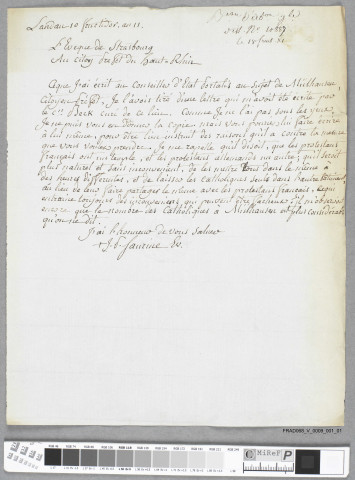 Landau 10 fructidor an 11.
L'Evêque de Strasbourg
Au citoy. Préfet du haut-Rhin
Ce que j'ai écrit au Conseiller d'Etat Portalis au sujet de Mulhausen,
Citoyen Préfet, je l'avois tiré d'une lettre qui m'avoit été écrite par
le C. Beck curé de ce lieu. Comme je ne l'ai pas sous les yeux,
je ne puis vous en donner la copie; mais vous pouvez lui faire écrire
à lui même, pour être bien instruit des raisons qu'il a contre la mesure
que vous voulez prendre. Je me rapelle qu'il disoit, que les protestans
français ont un temple, et les protestans allemands un autre; qu'il seroit
plus naturel et sans inconvenient, de les mettre tous dans le même à
des heures differentes, et de laisser les Catholiques seuls dans l'autre
au lieu de leur faire partager le même avec les protestans français, ce qui
entraine toujours des inconveniens, qui peuvent être facheux. il m'observoit
encore que le nombre des Catholiques à Mulhausen est plus considérable
qu'on ne dit.
J'ai l'honneur de vous saluer
+ J. P. Saurine Ev.
FRAD068_V_0009_001_01
MiReF